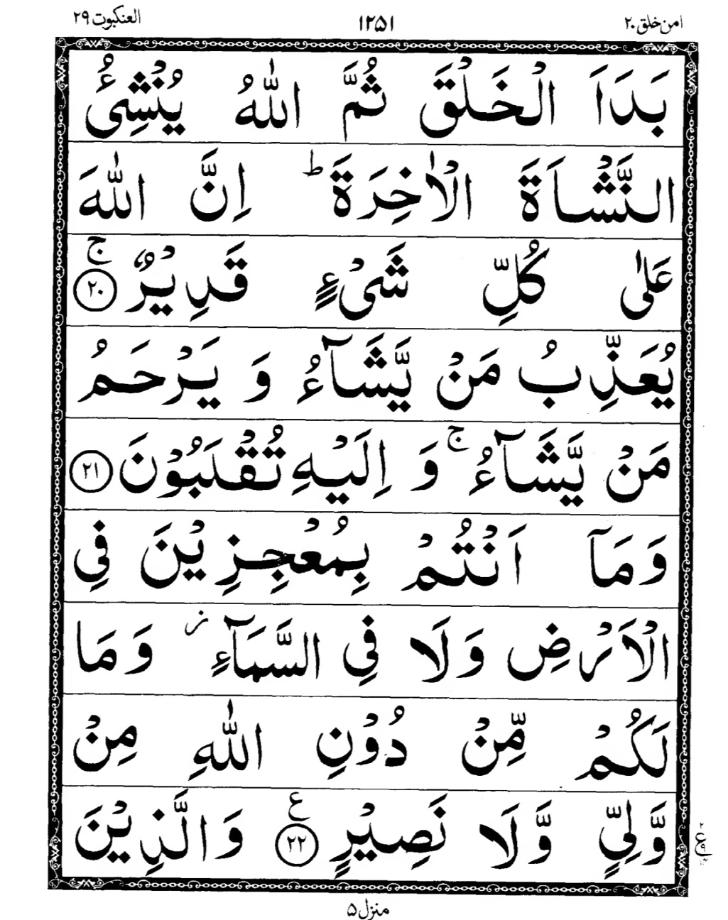 امن خلق ۲۰ ۱۲۵۱ العنكبوت ۲۹
بَدَاَ الْخَلْقَ ثُمَّ اللّٰهُ يُنْشِئُ
النَّشْاَةَ الْاٰخِرَةَ ؕ اِنَّ اللّٰهَ
عَلٰى كُلِّ شَیْءٍ قَدِيْرٌ ۚ ﴿۲۰﴾
يُعَذِّبُ مَنْ يَّشَآءُ وَ يَرْحَمُ
مَنْ يَّشَآءُ ۚ وَ اِلَيْهِ تُقْلَبُوْنَ ﴿۲۱﴾
وَمَاۤ اَنْتُمْ بِمُعْجِزِيْنَ فِي
الْاَرْضِ وَلَا فِي السَّمَآءِ ؗ وَمَا
لَكُمْ مِّنْ دُوْنِ اللّٰهِ مِنْ
وَّلِيٍّ وَّلَا نَصِيْرٍ ﴿۲۲﴾ ع وَالَّذِيْنَ
منزل ۵